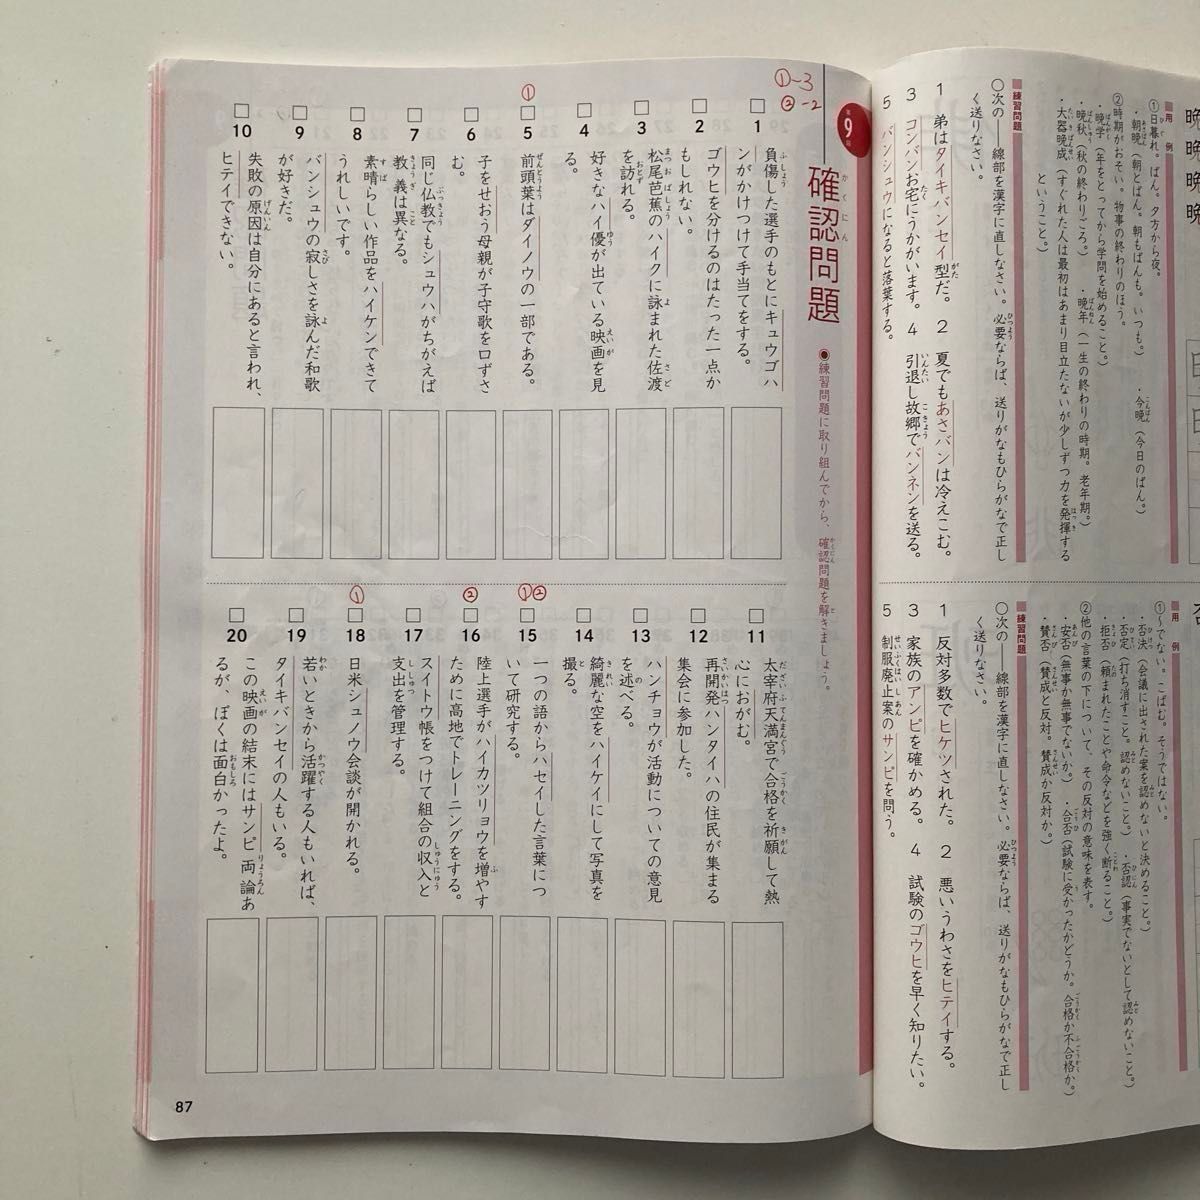 晩
晩
晩
用例
①日暮れ。ばん。夕方から夜。
・朝晩(朝とばん。朝もばんも。いつも。) ・今晩(今日のばん。)
②時期がおそい。物事の終わりのほう。
・晩学(年をとってから学問を始めること。)
・晩秋(秋の終わりごろ。) ・晩年(一生の終わりの時期。老年期。)
・大器晩成(すぐれた人は最初はあまり目立たないが少しずつ力を発揮する
ということ。)
練習問題
○次の――線部を漢字に直しなさい。必要ならば、送りがなもひらがなで正し
く送りなさい。
1 弟はタイキバンセイ型だ。 2 夏でもあさバンは冷えこむ。
3 コンバンお宅にうかがいます。 4 引退し故郷でバンネンを送る。
5 バンシュウになると落葉する。
用例
①〜でない。こばむ。そうではない。
・否決(会議に出された案を認めないと決めること。)
・否定(打ち消すこと。認めないこと。) ・否認(事実でないとして認めないこと。)
・拒否(頼まれたことや命令などを強く断ること。)
②他の言葉の下について、その反対の意味を表す。
・安否(無事か無事でないか。) ・合否(試験に受かったかどうか。合格か不合格か。)
・賛否(賛成と反対。賛成か反対か。)
練習問題
○次の――線部を漢字に直しなさい。必要ならば、送りがなもひらがなで正し
く送りなさい。
1 反対多数でヒケツされた。 2 悪いうわさをヒテイする。
3 家族のアンピを確かめる。 4 試験のゴウヒを早く知りたい。
5 制服廃止案のサンピを問う。
①-3
②-2
第9回
確認問題
●練習問題に取り組んでから、確認問題を解きましょう。
1 負傷した選手のもとにキュウゴハ
ンがかけつけて手当てをする。
2 ゴウヒを分けるのはたった一点か
もしれない。
3 松尾芭蕉のハイクに詠まれた佐渡
を訪れる。
4 好きなハイ優が出ている映画を見
る。
①
5 前頭葉はダイノウの一部である。
6 子をせおう母親が子守歌を口ずさ
む。
7 同じ仏教でもシュウハがちがえば
教義は異なる。
8 素晴らしい作品をハイケンできて
うれしいです。
9 バンシュウの寂しさを詠んだ和歌
が好きだ。
10 失敗の原因は自分にあると言われ、
ヒテイできない。
11 太宰府天満宮で合格を祈願して熱
心におがむ。
12 再開発ハンタイハの住民が集まる
集会に参加した。
13 ハンチョウが活動についての意見
を述べる。
14 綺麗な空をハイケイにして写真を
撮る。
①②
15 一つの語からハセイした言葉につ
いて研究する。
②
16 陸上選手がハイカツリョウを増やす
ために高地でトレーニングをする。
17 スイトウ帳をつけて組合の収入と
支出を管理する。
①
18 日米シュノウ会談が開かれる。
19 若いときから活躍する人もいれば、
タイキバンセイの人もいる。
20 この映画の結末にはサンピ両論あ
るが、ぼくは面白かったよ。
87